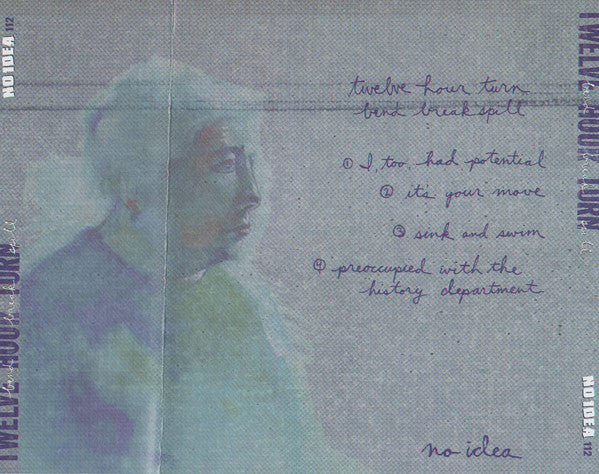 NO IDEA 112
TWELVE HOUR TURN
bend break spill
twelve hour turn
bend break spill
① I, too, had potential
② it's your move
③ sink and swim
④ preoccupied with the
history department
no idea
TWELVE HOUR TURN
bend break spill
NO IDEA 112